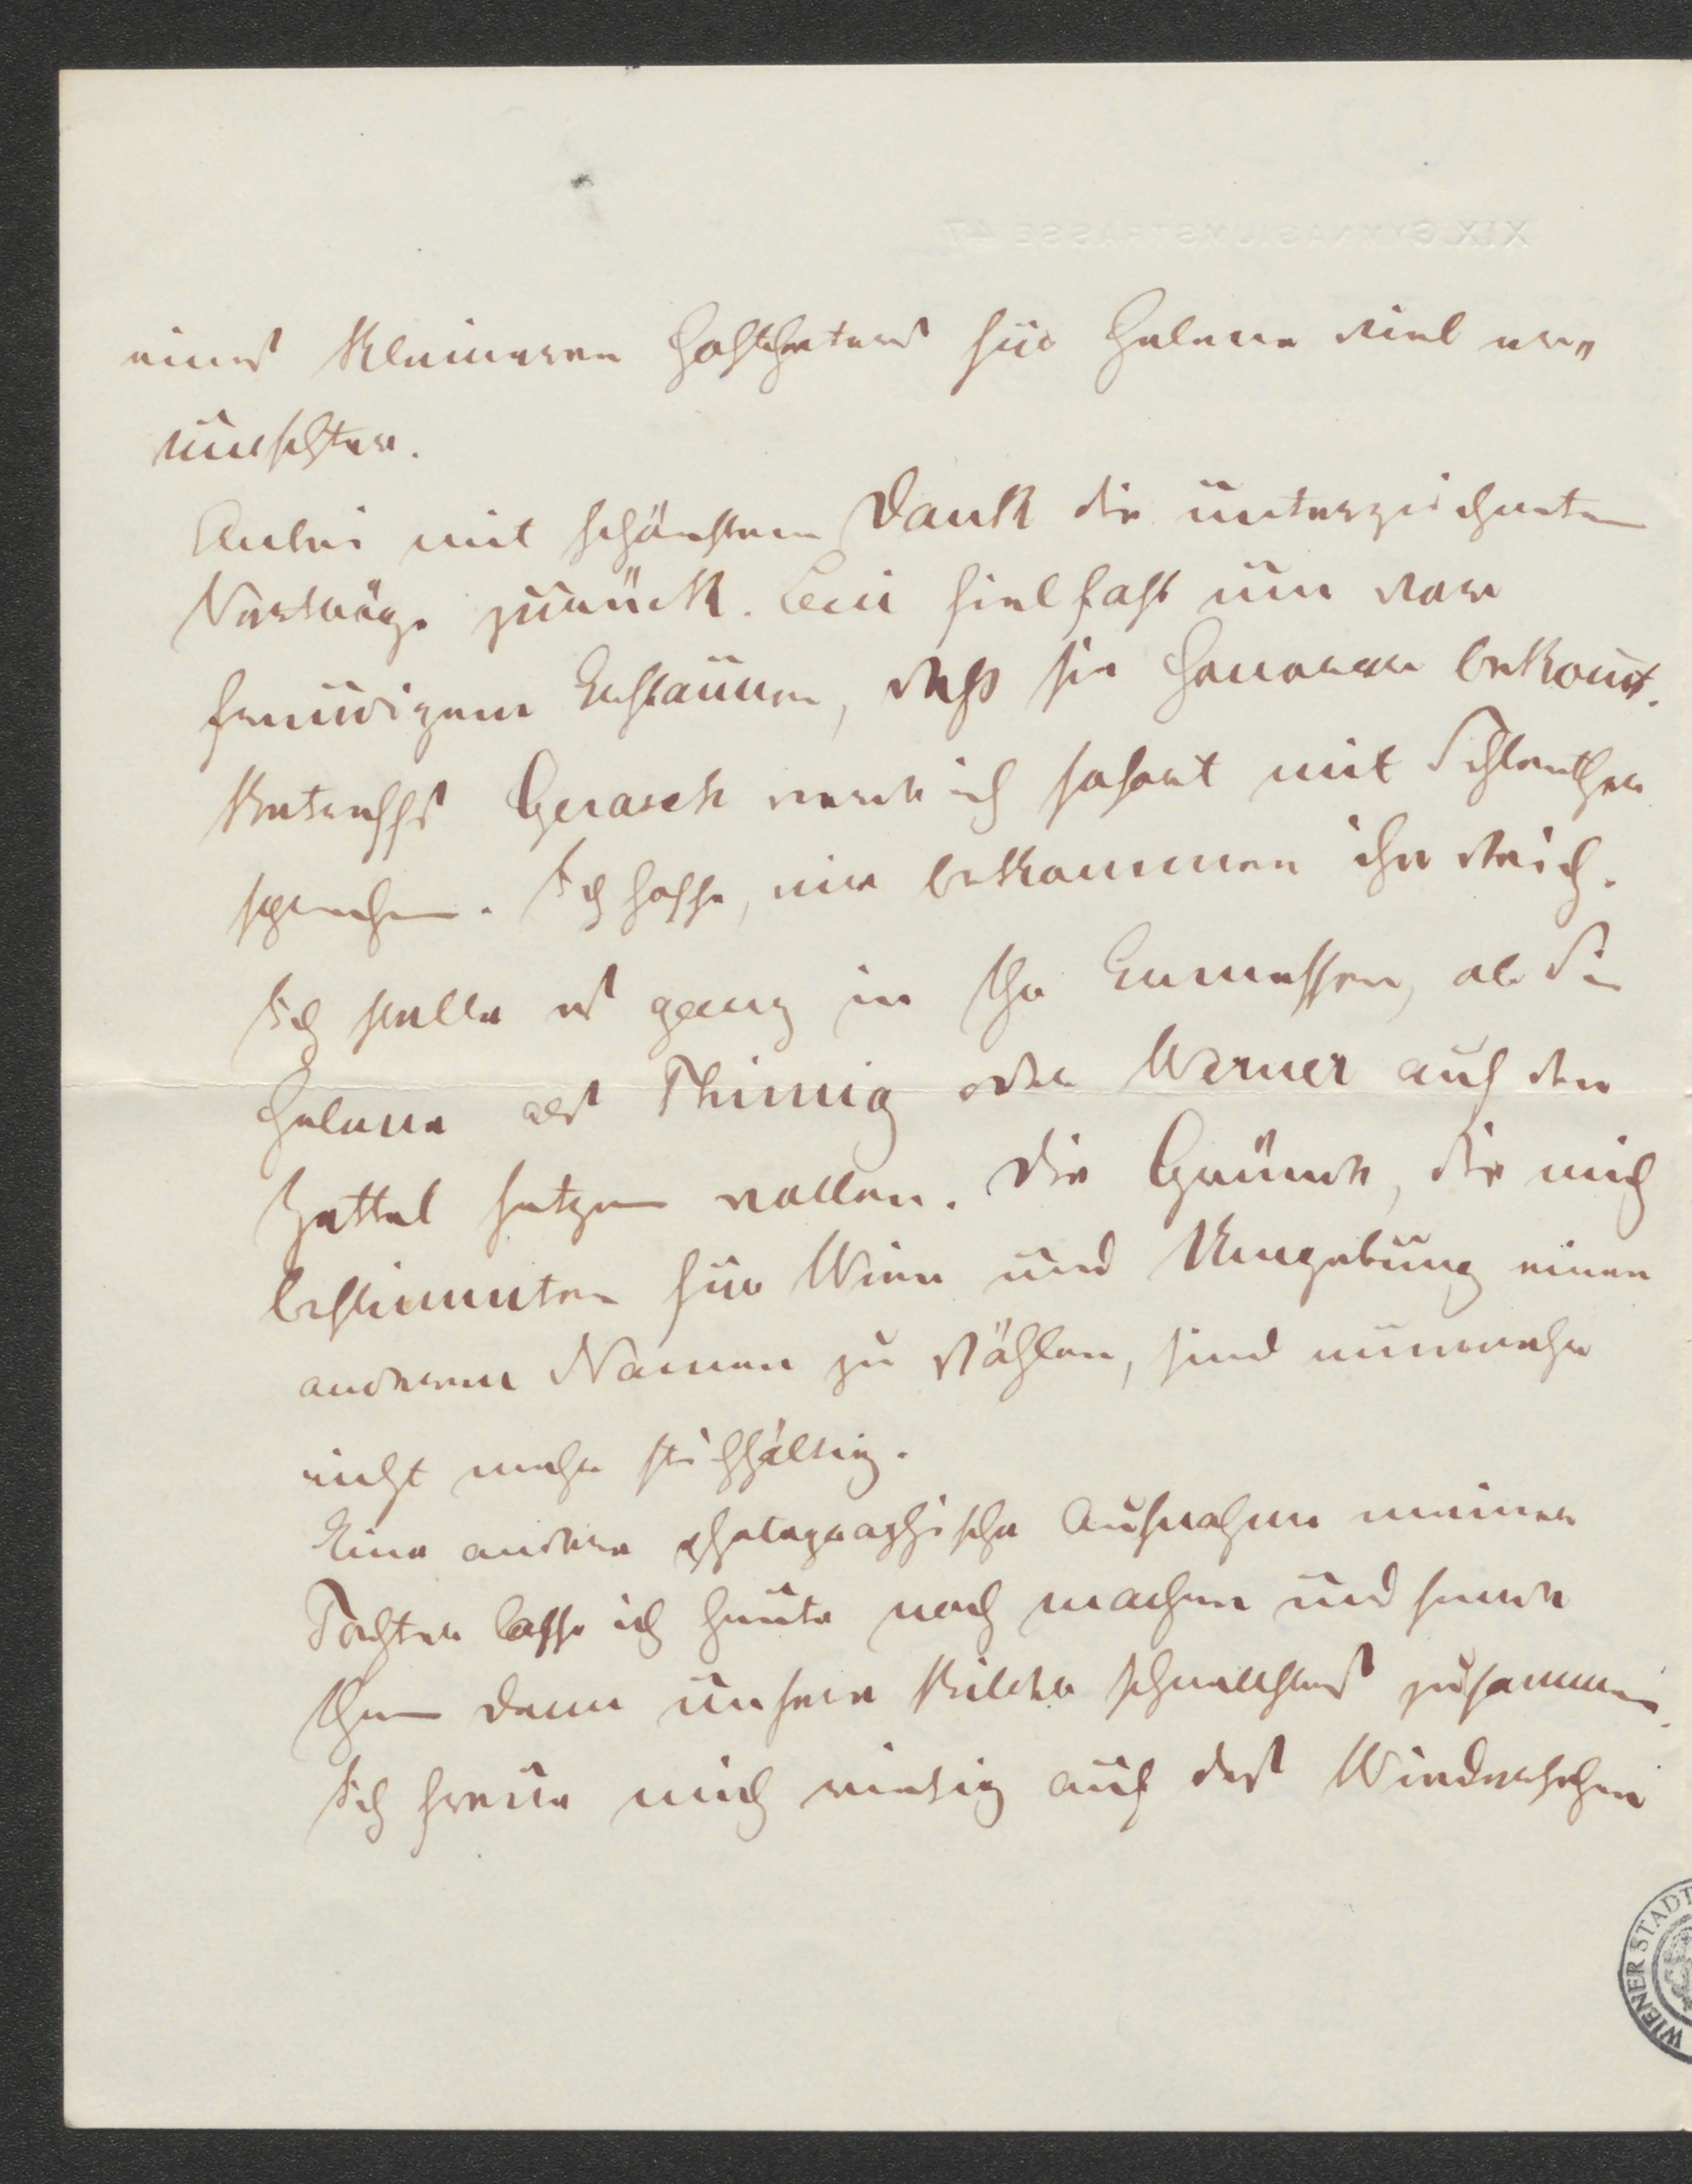 XIX. GYMNASIUMSTRASSE 47
eines kleineren Hoftheaters für Helene viel er-
wünschter.
Anbei mit schönstem Dank die unterzeichneten
Verträge zurück. Leni fiel fast um vor
freudigem Erstaunen, daß sie Honorar bekomt.
Betreffs Gerasch werde ich sofort mit Schlenther
sprechen. Ich hoffe, wir bekommen ihn durch.
Ich stelle es ganz in Ihr Ermessen, ob Sie
Helene als Thimig oder Werner auf den
Zettel setzen wollen. Die Gründe, die mich
bestimmten für Wien und Umgebung einen
anderen Namen zu wählen, sind nunmehr
nicht mehr stichhältig.
Eine andere photographische Aufnahme meiner
Tochter lasse ich heute noch machen und sende
Ihnen dann unsere Bilder schnellstens zusammen.
Ich freue mich riesig auf das Wiedersehen
WIENER STADT